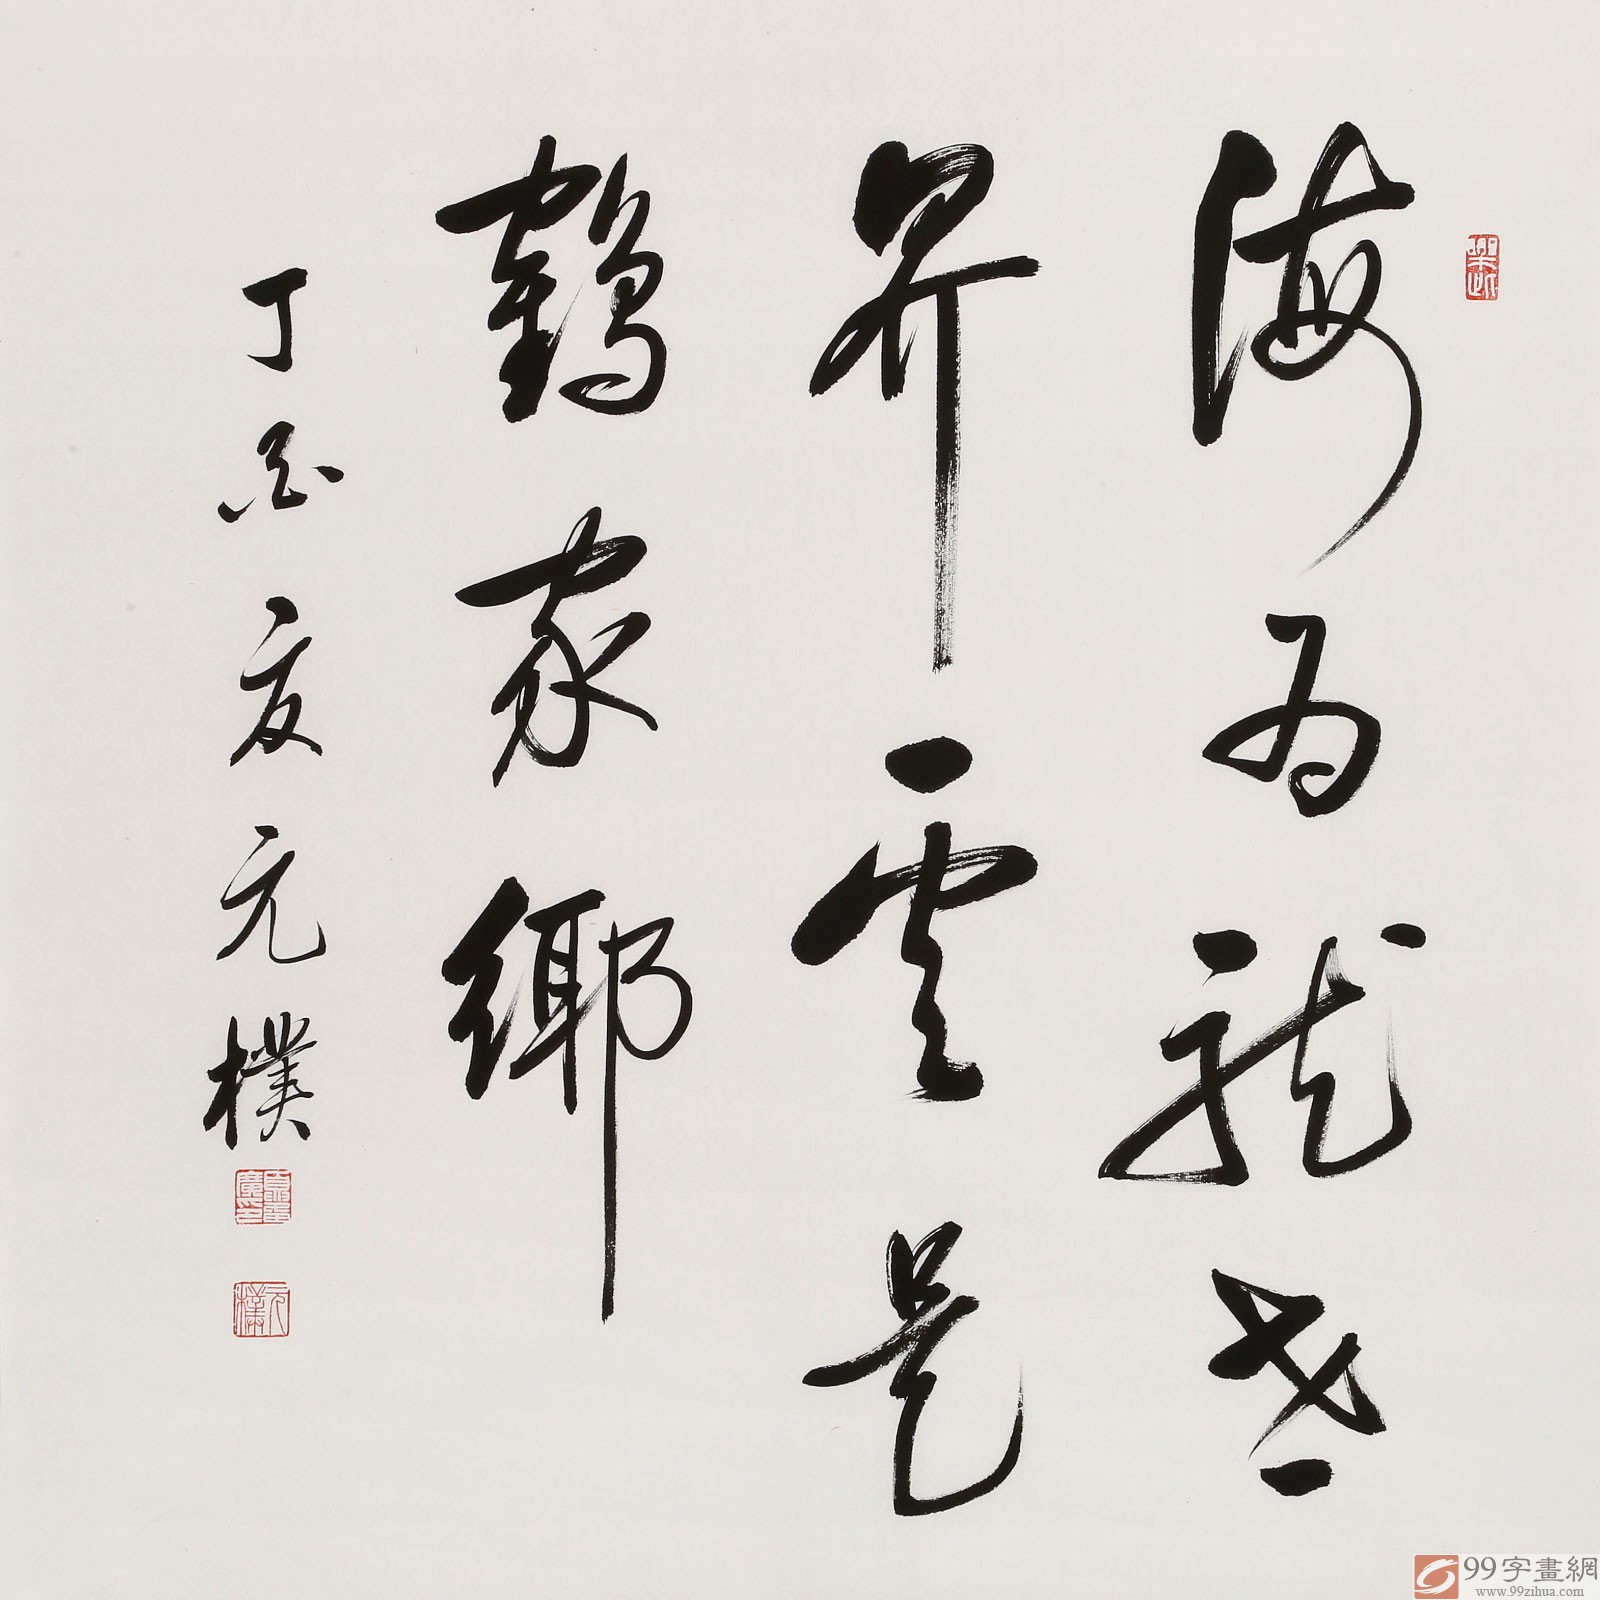 海為龍世
界雲是
鶴家鄉
丁酉夏元樸
元樸
99字畫網
www.99zihua.com